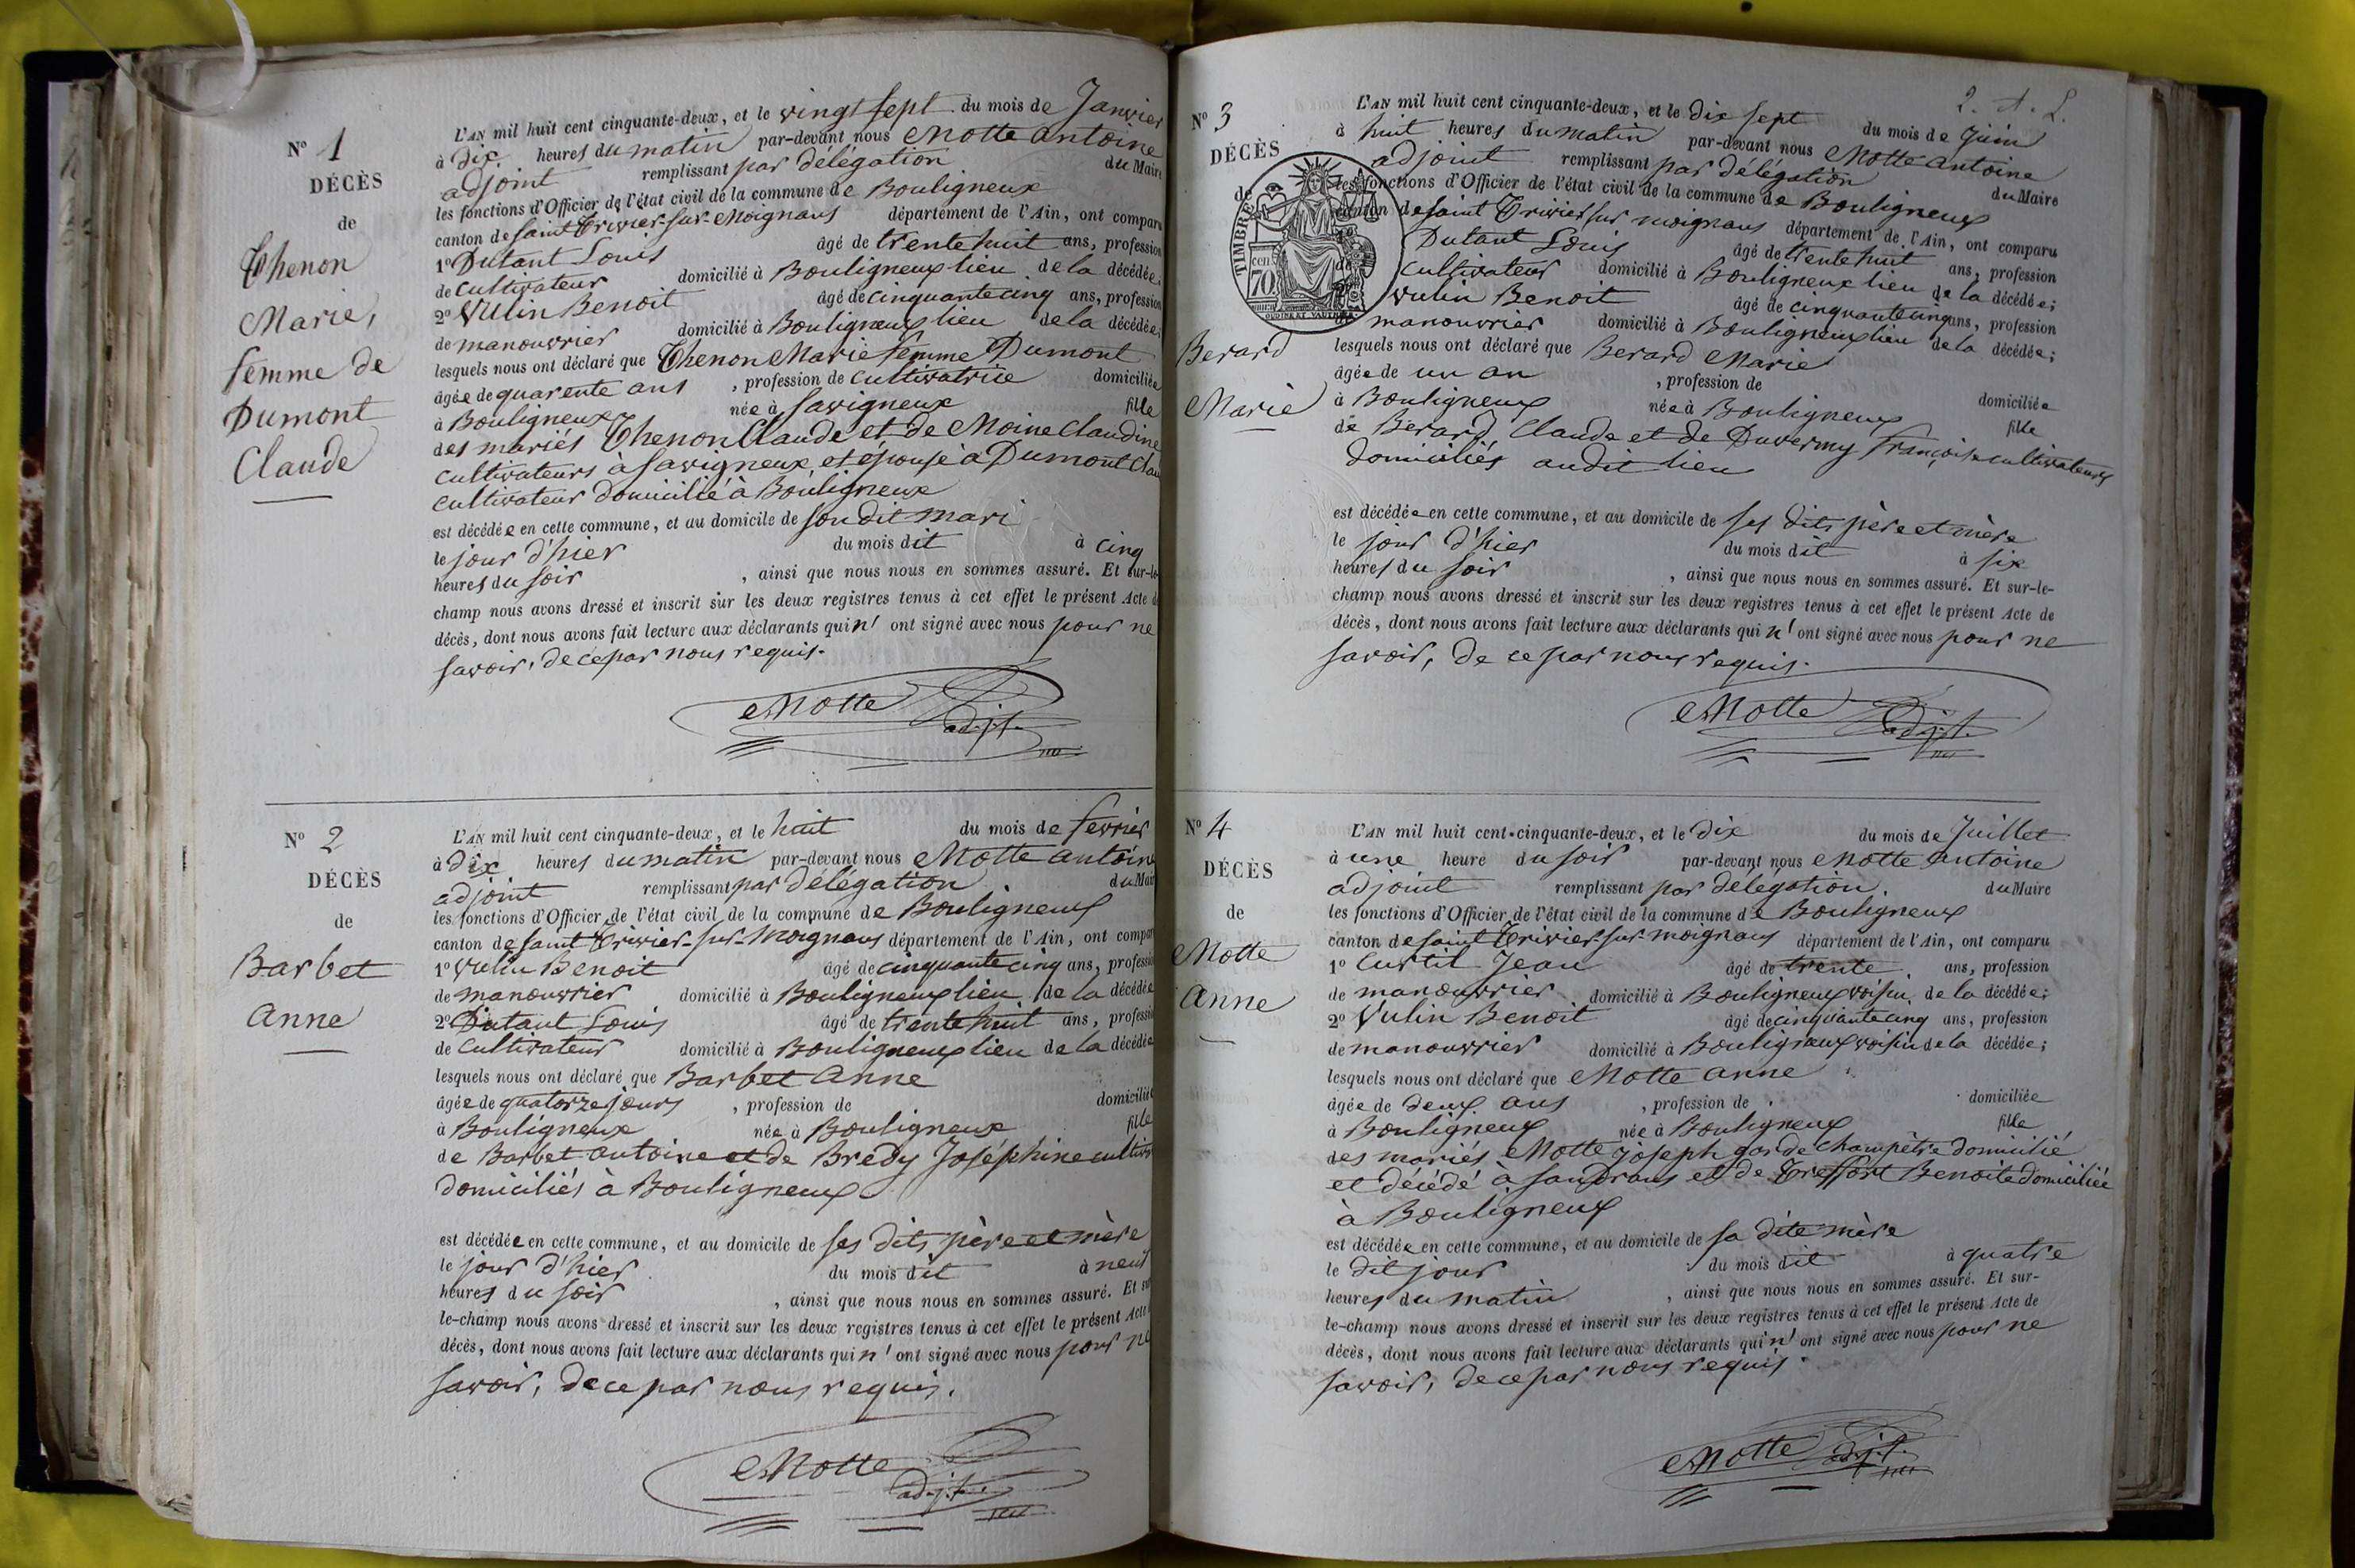 N° 1
DÉCÈS
de
Thenon
Marie,
femme de
Dumont
Claude
L'AN mil huit cent cinquante-deux, et le vingt sept du mois de Janvier
à dix heures du matin par-devant nous Motte antoine
adjoint remplissant par délégation du Maire
les fonctions d'Officier de l'état civil de la commune de Bouligneux
canton de saint Trivier-sur-Moignans département de l'Ain, ont comparu
1° Dutant Louis âgé de trente huit ans, profession
de cultivateur domicilié à Bouligneux lieu de la décédée;
2° Vulin Benoit âgé de cinquante cinq ans, profession
de manouvrier domicilié à Bouligneux lieu de la décédée;
lesquels nous ont déclaré que Thenon Marie femme Dumont
âgée de quarente ans , profession de cultivatrice domiciliée
à Bouligneux née à Savigneux fille
des mariés Thenon Claude et de Moine Claudine
cultivateurs à Savigneux, et épouse à Dumont Clau
cultivateur domicilié à Bouligneux
est décédée en cette commune, et au domicile de son dit mari
le jour d'hier du mois dit à cinq
heures du soir , ainsi que nous nous en sommes assuré. Et sur-le-
champ nous avons dressé et inscrit sur les deux registres tenus à cet effet le présent Acte de
décès, dont nous avons fait lecture aux déclarants qui n' ont signé avec nous pour ne
savoir, de ce par nous requis.
Motte
adjt.
N° 2
DÉCÈS
de
Barbet
anne
L'AN mil huit cent cinquante-deux, et le huit du mois de fevrier
à dix heures du matin par-devant nous Motte antoine
adjoint remplissant par délégation du Mair
les fonctions d'Officier de l'état civil de la commune de Bouligneux
canton de saint Trivier-sur-Moignans département de l'Ain, ont compar
1° Vulin Benoit âgé de cinquante cinq ans, profession
de manouvrier domicilié à Bouligneux lieu de la décédée
2° Dutant Louis âgé de trente huit ans, profession
de cultivateur domicilié à Bouligneux lieu de la décédée
lesquels nous ont déclaré que Barbet anne
âgée de quatorze jours , profession de domiciliée
à Bouligneux née à Bouligneux fille
de Barbet antoine et de Bredy Joséphine cultiv
domiciliés à Bouligneux
est décédée en cette commune, et au domicile de ses dits père et mère
le jour d'hier du mois dit à neuf
heures du soir , ainsi que nous nous en sommes assuré. Et su
le-champ nous avons dressé et inscrit sur les deux registres tenus à cet effet le présent Acte
décès, dont nous avons fait lecture aux déclarants qui n' ont signé avec nous pour ne
savoir, de ce par nous requis.
Motte
adjt.
2. A. L.
N° 3
DÉCÈS
de
Berard
Marie
TIMBRE
70
cen
L'AN mil huit cent cinquante-deux, et le dix sept du mois de Juin
à huit heures du matin par-devant nous Motte antoine
adjoint remplissant par délégation du Maire
les fonctions d'Officier de l'état civil de la commune de Bouligneux
canton de saint Trivier sur moignans département de l'Ain, ont comparu
1° Dutant Louis âgé de trente huit ans, profession
de cultivateur domicilié à Bouligneux lieu de la décédée;
2° Vulin Benoit âgé de cinquante cinq ans, profession
de manouvrier domicilié à Bouligneux lieu de la décédée;
lesquels nous ont déclaré que Berard Marie
âgée de un an , profession de domiciliée
à Bouligneux née à Bouligneux fille
de Berard Claude et de Duvermy françoise cultivateurs
domiciliés audit lieu
est décédée en cette commune, et au domicile de ses dits père et mère
le jour d'hier du mois dit à six
heures du soir , ainsi que nous nous en sommes assuré. Et sur-le-
champ nous avons dressé et inscrit sur les deux registres tenus à cet effet le présent Acte de
décès, dont nous avons fait lecture aux déclarants qui n' ont signé avec nous pour ne
savoir, de ce par nous requis.
Motte
adjt.
N° 4
DÉCÈS
de
Motte
Anne
L'AN mil huit cent cinquante-deux, et le dix du mois de Juillet
à une heure du soir par-devant nous Motte antoine
adjoint remplissant par délégation. du Maire
les fonctions d'Officier de l'état civil de la commune de Bouligneux
canton de saint Trivier-sur-moignans département de l'Ain, ont comparu
1° Curtil Jean âgé de trente ans, profession
de manouvrier domicilié à Bouligneux voisin de la décédée;
2° Vulin Benoit âgé de cinquante cinq ans, profession
de manouvrier domicilié à Bouligneux voisin de la décédée;
lesquels nous ont déclaré que Motte anne
âgée de deux ans , profession de domiciliée
à Bouligneux née à Bouligneux fille
des mariés Motte joseph garde champêtre domicilié
et décédé à Sandrans et de Treffort Benoite domiciliée
à Bouligneux
est décédée en cette commune, et au domicile de sa dite mère
le dit jour du mois dit à quatre
heures du matin , ainsi que nous nous en sommes assuré. Et sur-
le-champ nous avons dressé et inscrit sur les deux registres tenus à cet effet le présent Acte de
décès, dont nous avons fait lecture aux déclarants qui n' ont signé avec nous pour ne
savoir, de ce par nous requis.
Motte adjt.